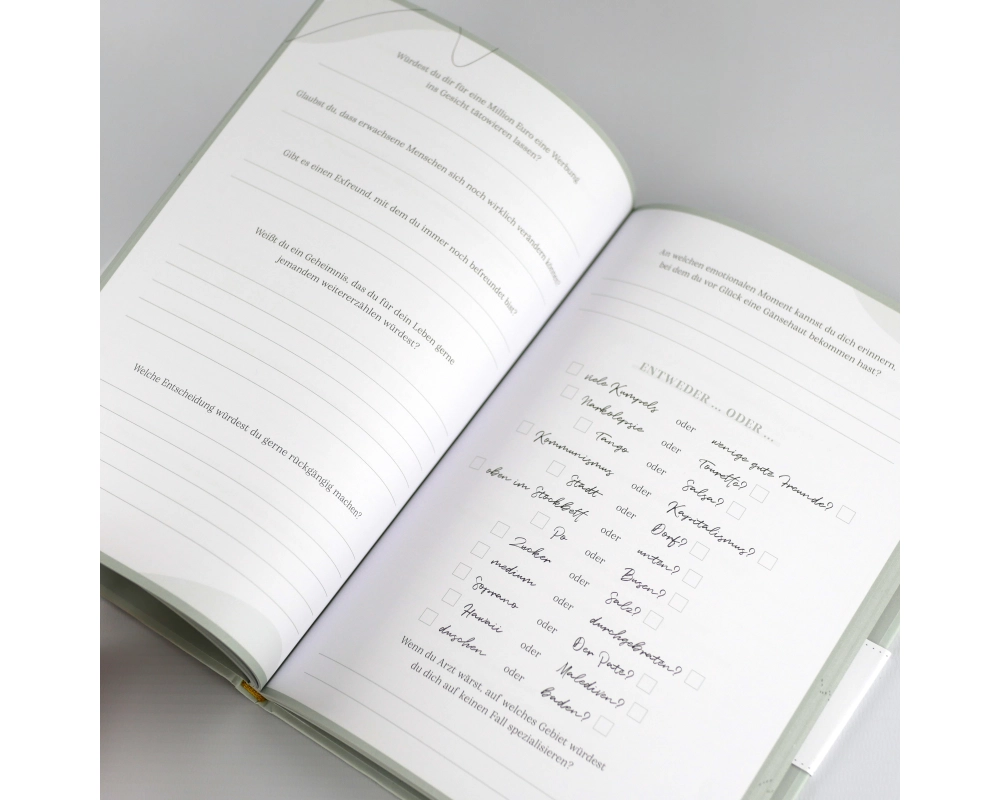 Würdest du dir für eine Million Euro eine Werbung
ins Gesicht tätowieren lassen?
Glaubst du, dass erwachsene Menschen sich noch wirklich verändern können?
Gibt es einen Exfreund, mit dem du immer noch befreundet bist?
Weißt du ein Geheimnis, das du für dein Leben gerne
jemandem weitererzählen würdest?
Welche Entscheidung würdest du gerne rückgängig machen?
An welchen emotionalen Moment kannst du dich erinnern,
bei dem du vor Glück eine Gänsehaut bekommen hast?
ENTWEDER ... ODER ...
viele Kumpels oder wenige gute Freunde?
Narkolepsie oder Tourette?
Tango oder Salsa?
Kommunismus oder Kapitalismus?
Stadt oder Dorf?
oben im Stockbett oder unten?
Po oder Busen?
Zucker oder Salz?
medium oder durchgebraten?
Soprano oder Der Pate?
Hawaii oder Malediven?
duschen oder Baden?
Wenn du Arzt wärst, auf welches Gebiet würdest
du dich auf keinen Fall spezialisieren?